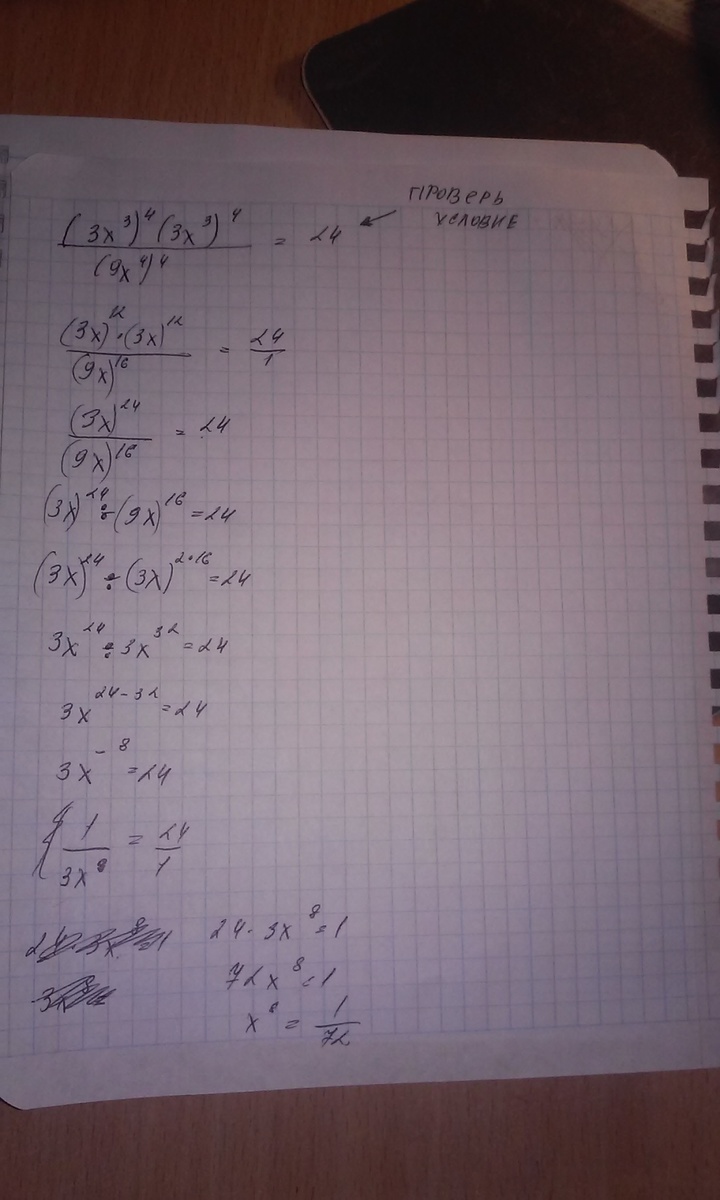 (3x³)⁴(3x³)⁴ / (9x⁴)⁴ = 24
ПРОВЕРЬ
УСЛОВИЕ
(3x)¹²·(3x)¹² / (9x)¹⁶ = 24/1
(3x)²⁴ / (9x)¹⁶ = 24
(3x)²⁴ ÷ (9x)¹⁶ = 24
(3x)²⁴ ÷ (3x)²·¹⁶ = 24
3x²⁴ ÷ 3x³² = 24
3x²⁴⁻³² = 24
3x⁻⁸ = 24
1 / 3x⁸ = 24/1
24·3x⁸ = 1
72x⁸ = 1
x⁸ = 1/72